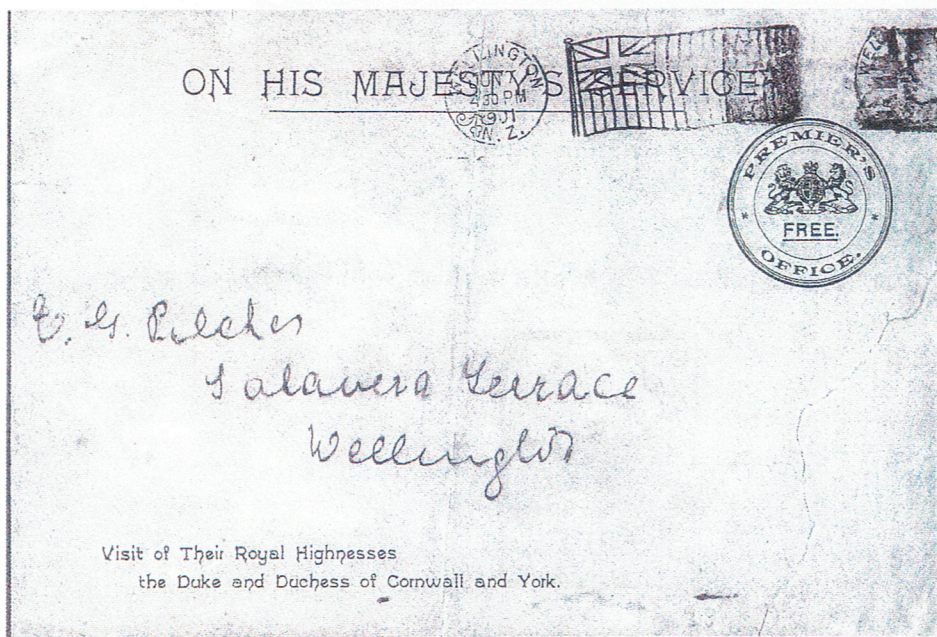 ON HIS MAJESTY'S SERVICE
WELLINGTON
4 30 PM
N.Z.
WEL
PREMIER'S
FREE.
OFFICE.
E. G. Pilcher
Talavera Terrace
Wellington
Visit of Their Royal Highnesses
the Duke and Duchess of Cornwall and York.